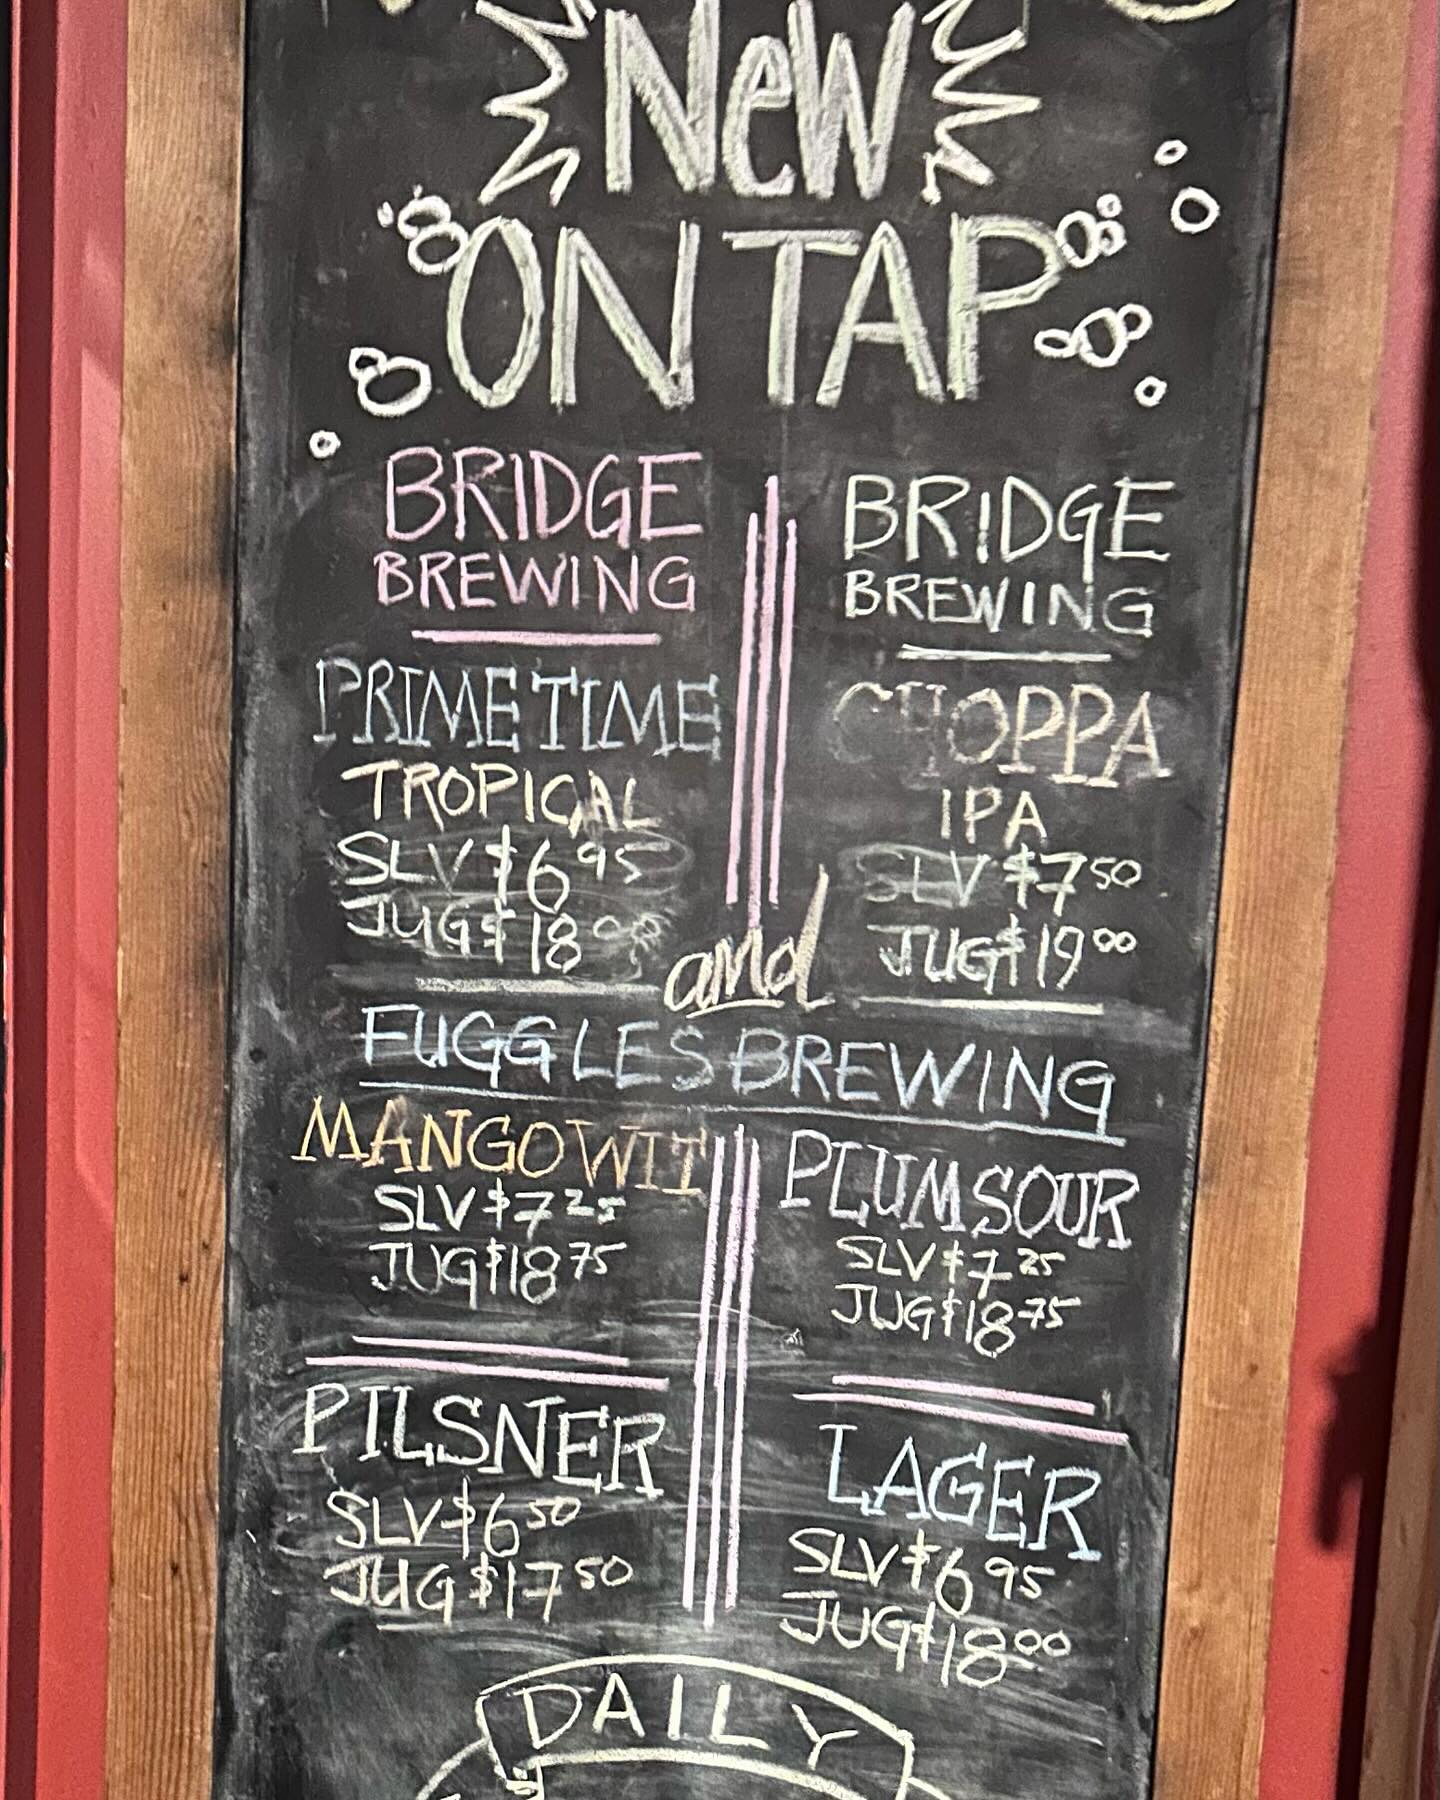 New
ON TAP
BRIDGE
BREWING
PRIME TIME
TROPICAL
SLV $6 95
JUG $18 00
BRIDGE
BREWING
CHOPPA
IPA
SLV $7 50
JUG $19 00
and
FUGGLES BREWING
MANGO WIT
SLV $7 25
JUG $18 75
PLUM SOUR
SLV $7 25
JUG $18 75
PILSNER
SLV $6 50
JUG $17 50
LAGER
SLV $6 95
JUG $18 00
DAILY